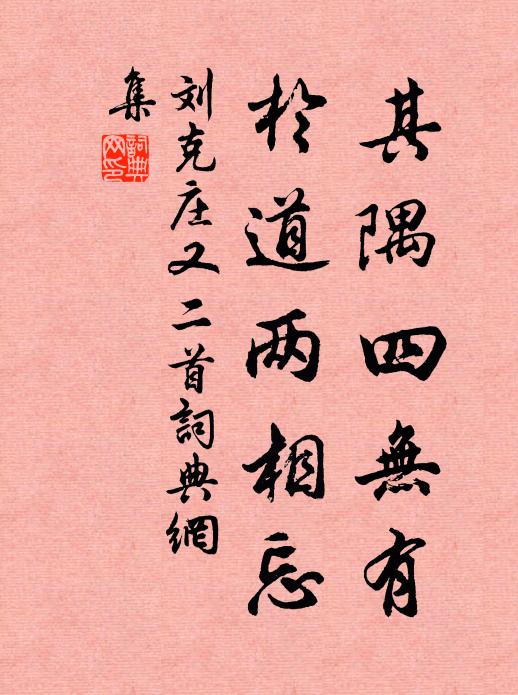 其隅四無有
於道两相忘
刘克庄又二首詞典網
集
詞典
网印